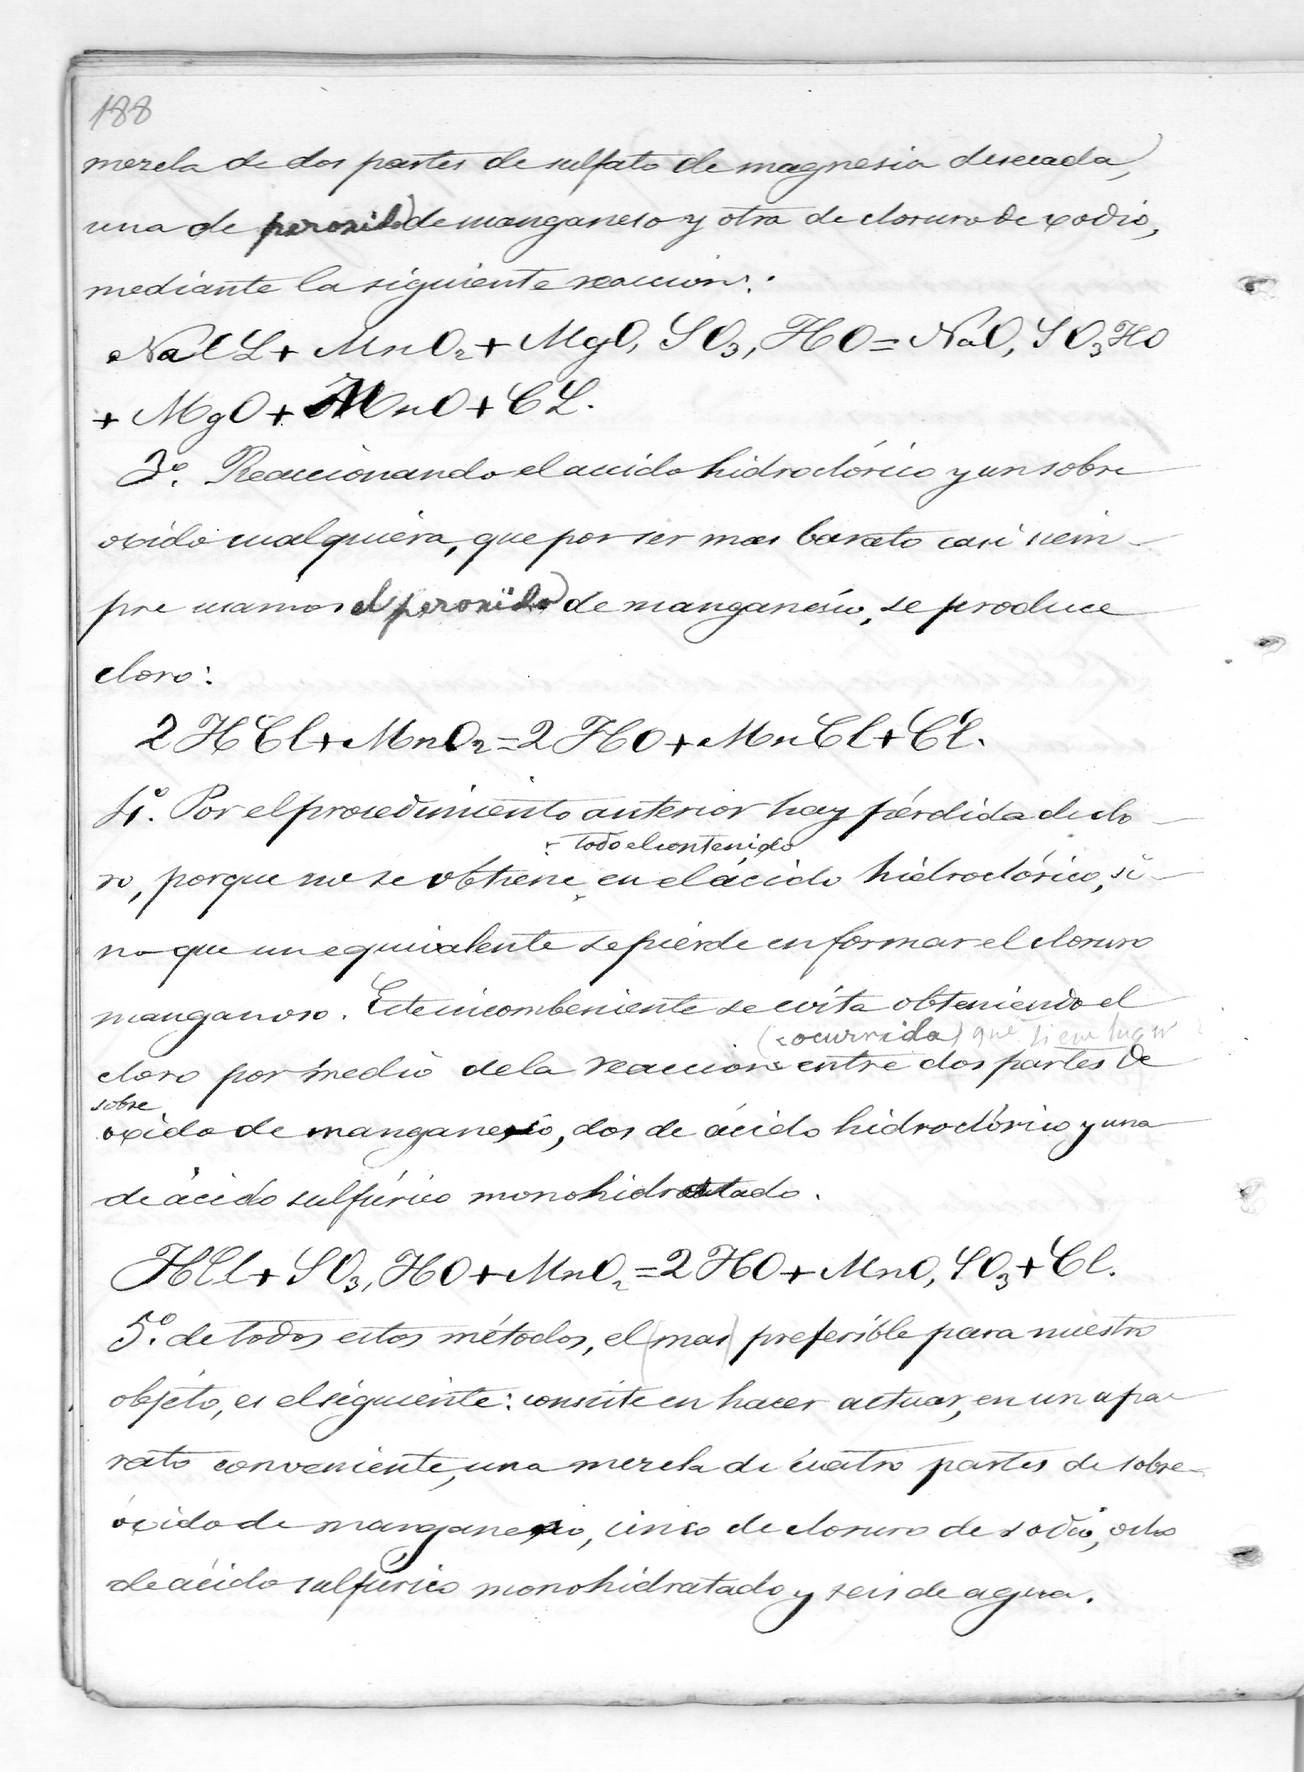 188
mezcla de dos partes de sulfato de magnesia desecada,
una de peroxido de manganeso y otra de cloruro de sodio,
mediante la siguiente reaccion:
NaCl + MnO₂ + MgO, SO₃, HO = NaO, SO₃ HO
+ MgO + MnO + Cl.
3º. Reaccionando el acido hidroclórico y un sobre
oxido cualquiera, que por ser mas barato casi siem-
pre usamos el peroxido de manganesio, se produce
cloro:
2HCl + MnO₂ = 2HO + MnCl + Cl.
4º. Por el procedimiento anterior hay pérdida de clo-
todo el contenido
ro, porque no se obtiene en el ácido hidroclórico, si-
no que un equivalente se pierde en formar el cloruro
manganoso. Este incombeniente se evita obteniendo el
(ocurrida) que tiene lugar
cloro por medio de la reaccion entre dos partes de
sobre
oxido de manganesio, dos de ácido hidroclórico y una
de ácido sulfúrico monohidratado.
HCl + SO₃, HO + MnO₂ = 2HO + MnO, SO₃ + Cl.
5º. de todos estos métodos, el (mas) preferible para nuestro
objeto, es el siguiente: consiste en hacer actuar, en un apa-
rato conveniente, una mezcla de cuatro partes de sobre-
óxido de manganesio, cinco de cloruro de sodio, ocho
de ácido sulfúrico monohidratado y seis de agua.